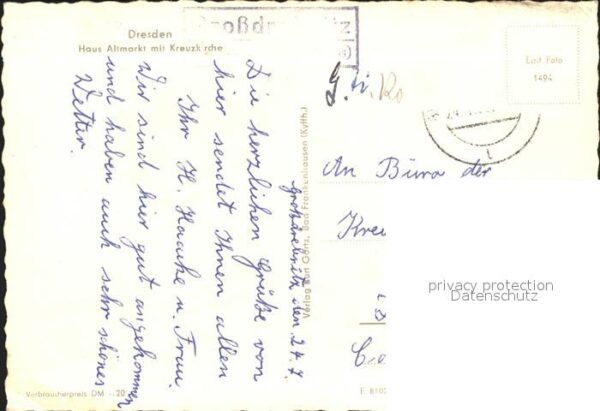 Dresden
Haus Altmarkt mit Kreuzkirche
Großdrebnitz, den 24.7.
Die herzlichen Grüße von
hier sendet Ihnen allen
Ihr H. Haacke u. Frau.
Wir sind hier gut angekommen
und haben auch sehr schönes
Wetter.
Verbraucherpreis DM -.20
Verlag Karl Görtz, Bad Frankenhausen (Kyffh.)
Echt Foto
1494
An Büro der
Kre
privacy protection
Datenschutz